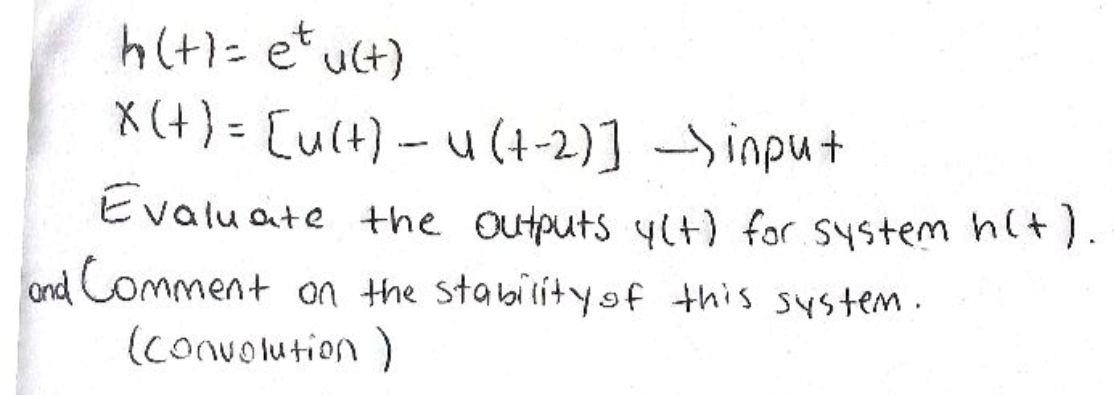 h(t) = e^t u(t)
x(t) = [u(t) - u(t-2)] → input
Evaluate the outputs y(t) for system h(t).
and Comment on the stability of this system.
(convolution)